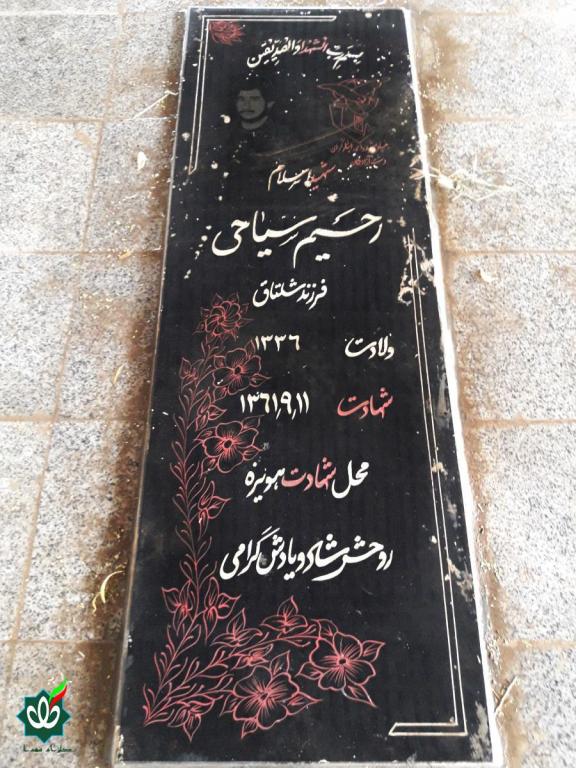 بسم رب الشهداء والصدیقین
شهید اسلام
رحیم سیاحی
فرزند شلتاق
ولادت ۱۳۳۶
شهادت ۱۳۶۱٫۹٫۱۱
محل شهادت هویزه
روحش شاد و یادش گرامی